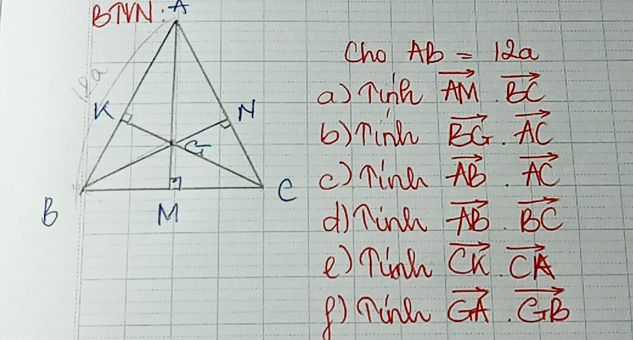 BTVN:
A
12a
K
N
G
B
M
C
Cho AB = 12a
a) Tính AM . BC
b) Tính BG . AC
c) Tính AB . AC
d) Tính AB . BC
e) Tính CK . CA
f) Tính GA . GB